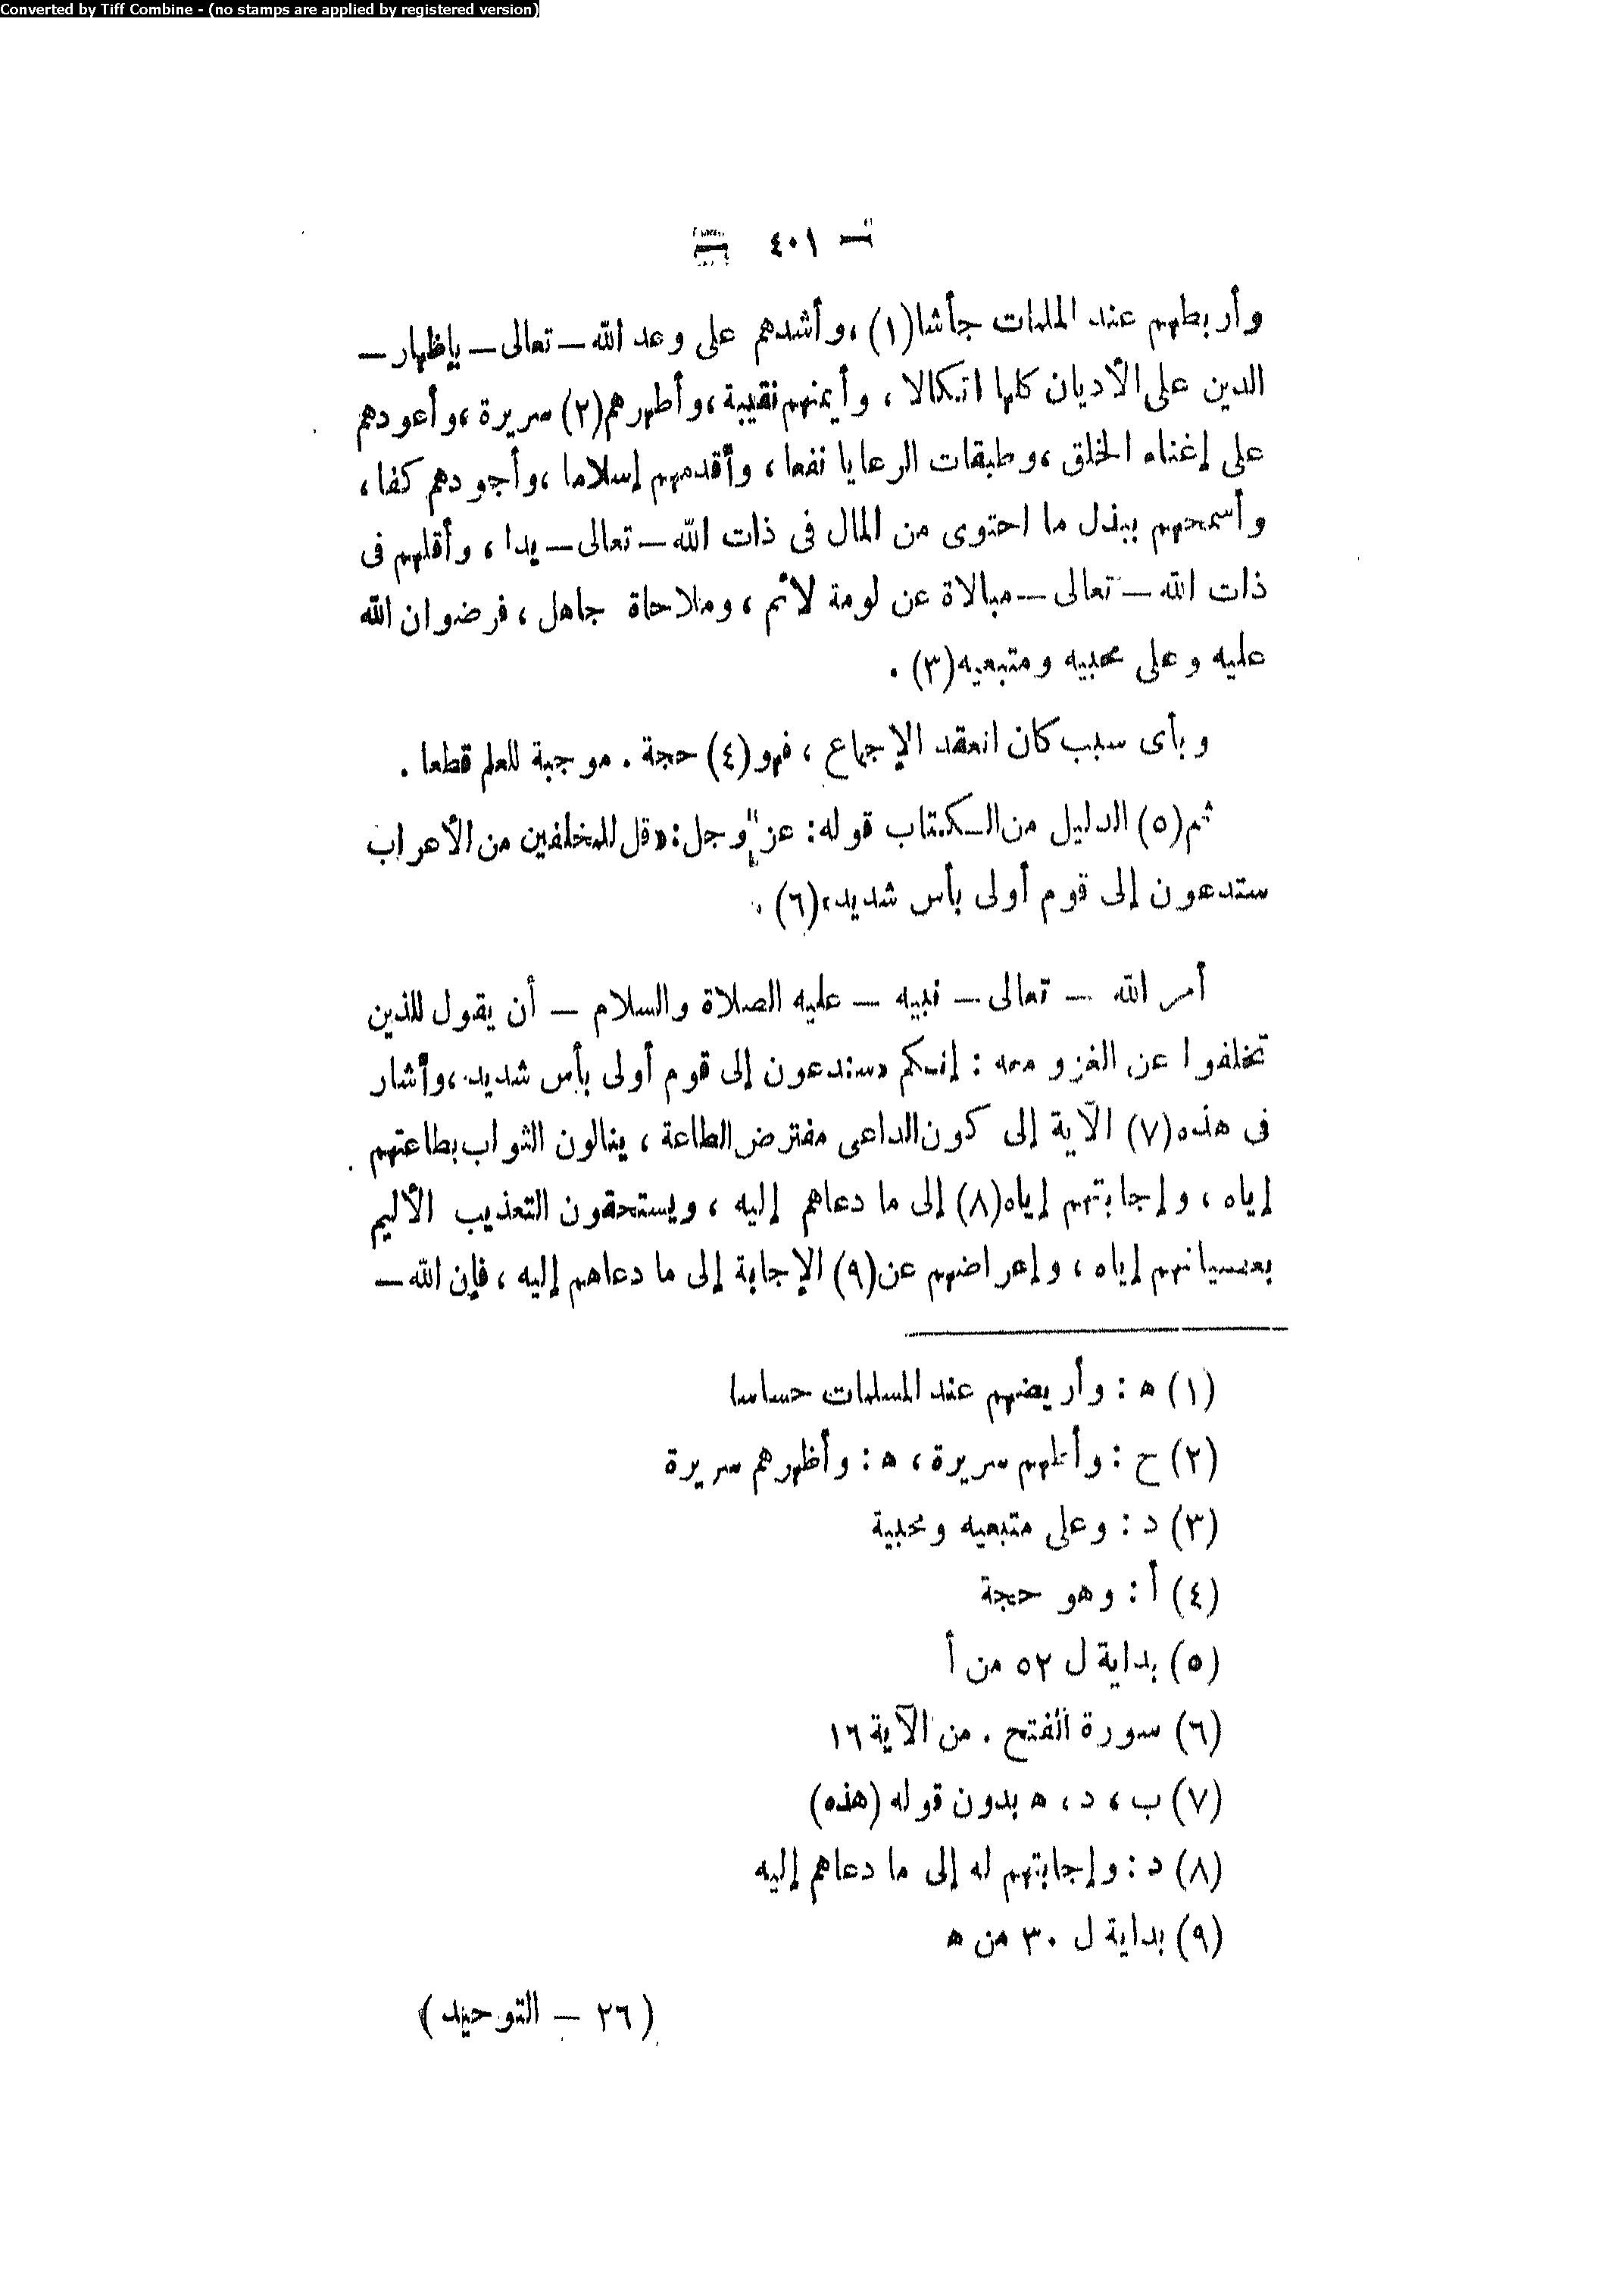 Converted by Tiff Combine - (no stamps are applied by registered version)
— ٤٠١ —
وأربطهم عند الملمات جأشا(١) ،وأشدهم على وعد الله – تعالى – بإظهار –
الدين على الأديان كلها اتكالا ، وأيمنهم نقيبة ،وأطهرهم(٢) سريرة ،وأعودهم
على إغناء الخلق ،وطبقات الرعايا نفعا ، وأقدمهم إسلاما ،وأجودهم كفا ،
وأسمحهم ببذل ما احتوى من المال فى ذات الله – تعالى – يدا ، وأقلهم فى
ذات الله – تعالى – مبالاة عن لومة لائم ، وملاحاة جاهل ، فرضوان الله
عليه وعلى محبيه ومتبعيه(٣) .
وبأى سبب كان انعقد الإجماع ، فهو(٤) حجة . موجبة للعلم قطعا .
ثم(٥) الدليل من الكتاب قوله : عز وجل : «قل للمخلفين من الأعراب
ستدعون إلى قوم أولى بأس شديد»(٦) .
أمر الله – تعالى – نبيه – عليه الصلاة والسلام – أن يقول للذين
تخلفوا عن الغزو معه : إنكم «ستدعون إلى قوم أولى بأس شديد ،وأشار
فى هذه(٧) الآية إلى كون الداعى مفترض الطاعة ، ينالون الثواب بطاعتهم
إياه ، وإجابتهم إياه(٨) إلى ما دعاهم إليه ، ويستحقون التعذيب الأليم
بعصيانهم إياه ، وإعراضهم عن(٩) الإجابة إلى ما دعاهم إليه ، فإن الله –
(١) ه : وأريضهم عند المسلمات حساسا
(٢) ح : وأظهم سريرة ، ه : وأظهرهم سريرة
(٣) د : وعلى متبعيه ومحبية
(٤) أ : وهو حجة
(٥) بداية ل ٥٢ من أ
(٦) سورة الفتح . من الآية ١٦
(٧) ب ، د ، ه بدون قوله (هذه)
(٨) د : وإجابتهم له إلى ما دعاهم إليه
(٩) بداية ل ٣٠ من ه
(٢٦ – التوحيد)